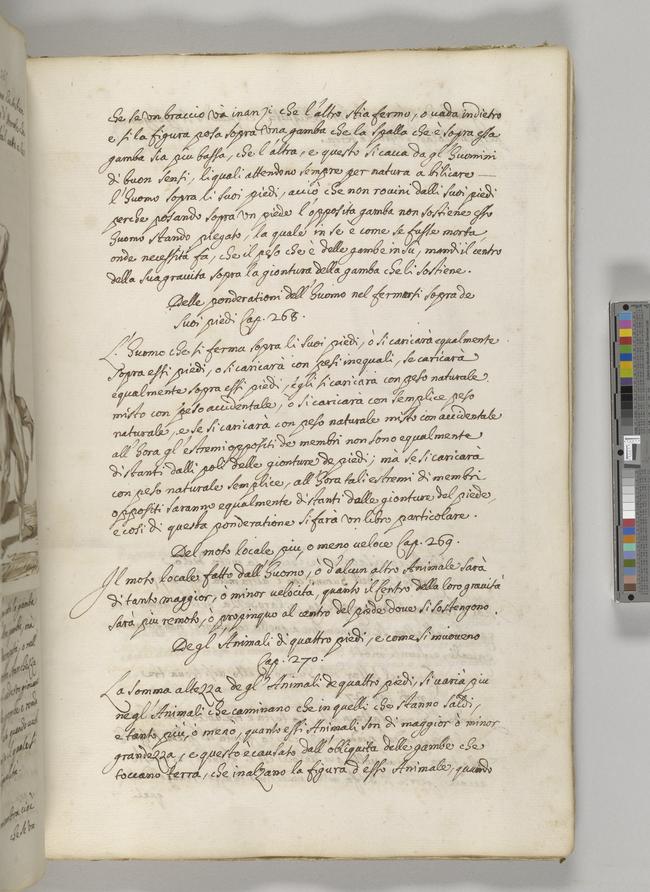 che se un braccio và inanzi che l'altro stia fermo, o uada indietro
e si la figura posa sopra una gamba che la spalla che è sopra essa
gamba sia piu bassa, che l'altra, e questo si caua da gl' Huomini
di buon sensi, li quali attendono sempre per natura a bilicare
l'Huomo sopra li suoi piedi, acciò che non rouini dalli suoi piedi
perche posando sopra un piede l'opposita gamba non sostiene esso
Huomo stando piegato, la quale in se è come se fusse morta
onde necessità fà, che il peso che è delle gambe in sù, mandi il centro
della sua grauità sopra la giontura della gamba che li sostiene.
Delle ponderationi dell'Huomo nel fermarsi sopra de
suoi piedi Cap. 268.
L'Huomo che si ferma sopra li suoi piedi, ò si caricarà equalmente
sopra essi piedi, o si caricarà con pesi inequali, se caricarà
equalmente sopra essi piedi, egli si caricarà con peso naturale
misto con peso accidentale, ò si caricarà con semplice peso
naturale, e se si caricarà con peso naturale misto con accidentale
all'hora gl' estremi oppositi de membri non sono equalmente
distanti dalli poli delle gionture de piedi; ma se si caricarà
con peso naturale semplice, all'hora tali estremi di membri
oppositi saranno equalmente distanti dalle gionture del piede,
e così di questa ponderatione si farà un libro particolare.
Del moto locale piu, o meno veloce Cap. 269.
Il moto locale fatto dall'Huomo, ò d'alcun altro Animale sarà
di tanto maggior, o minor velocità, quanto il centro della loro grauità
sarà piu remoto, ò propinquo al centro del piede doue si sostengono.
Degl' Animali di quattro piedi, e come si muoueno
Cap. 270.
La somma altezza degl' Animali de quattro piedi, si varia piu
negl' Animali che caminano che in quelli che stanno saldi,
e tanto più, ò meno, quanto essi Animali son di maggior ò minor
grandezza, e questo è causato dall'obliquita delle gambe che
toccano terra, che inalzano la figura d'esso Animale, quando